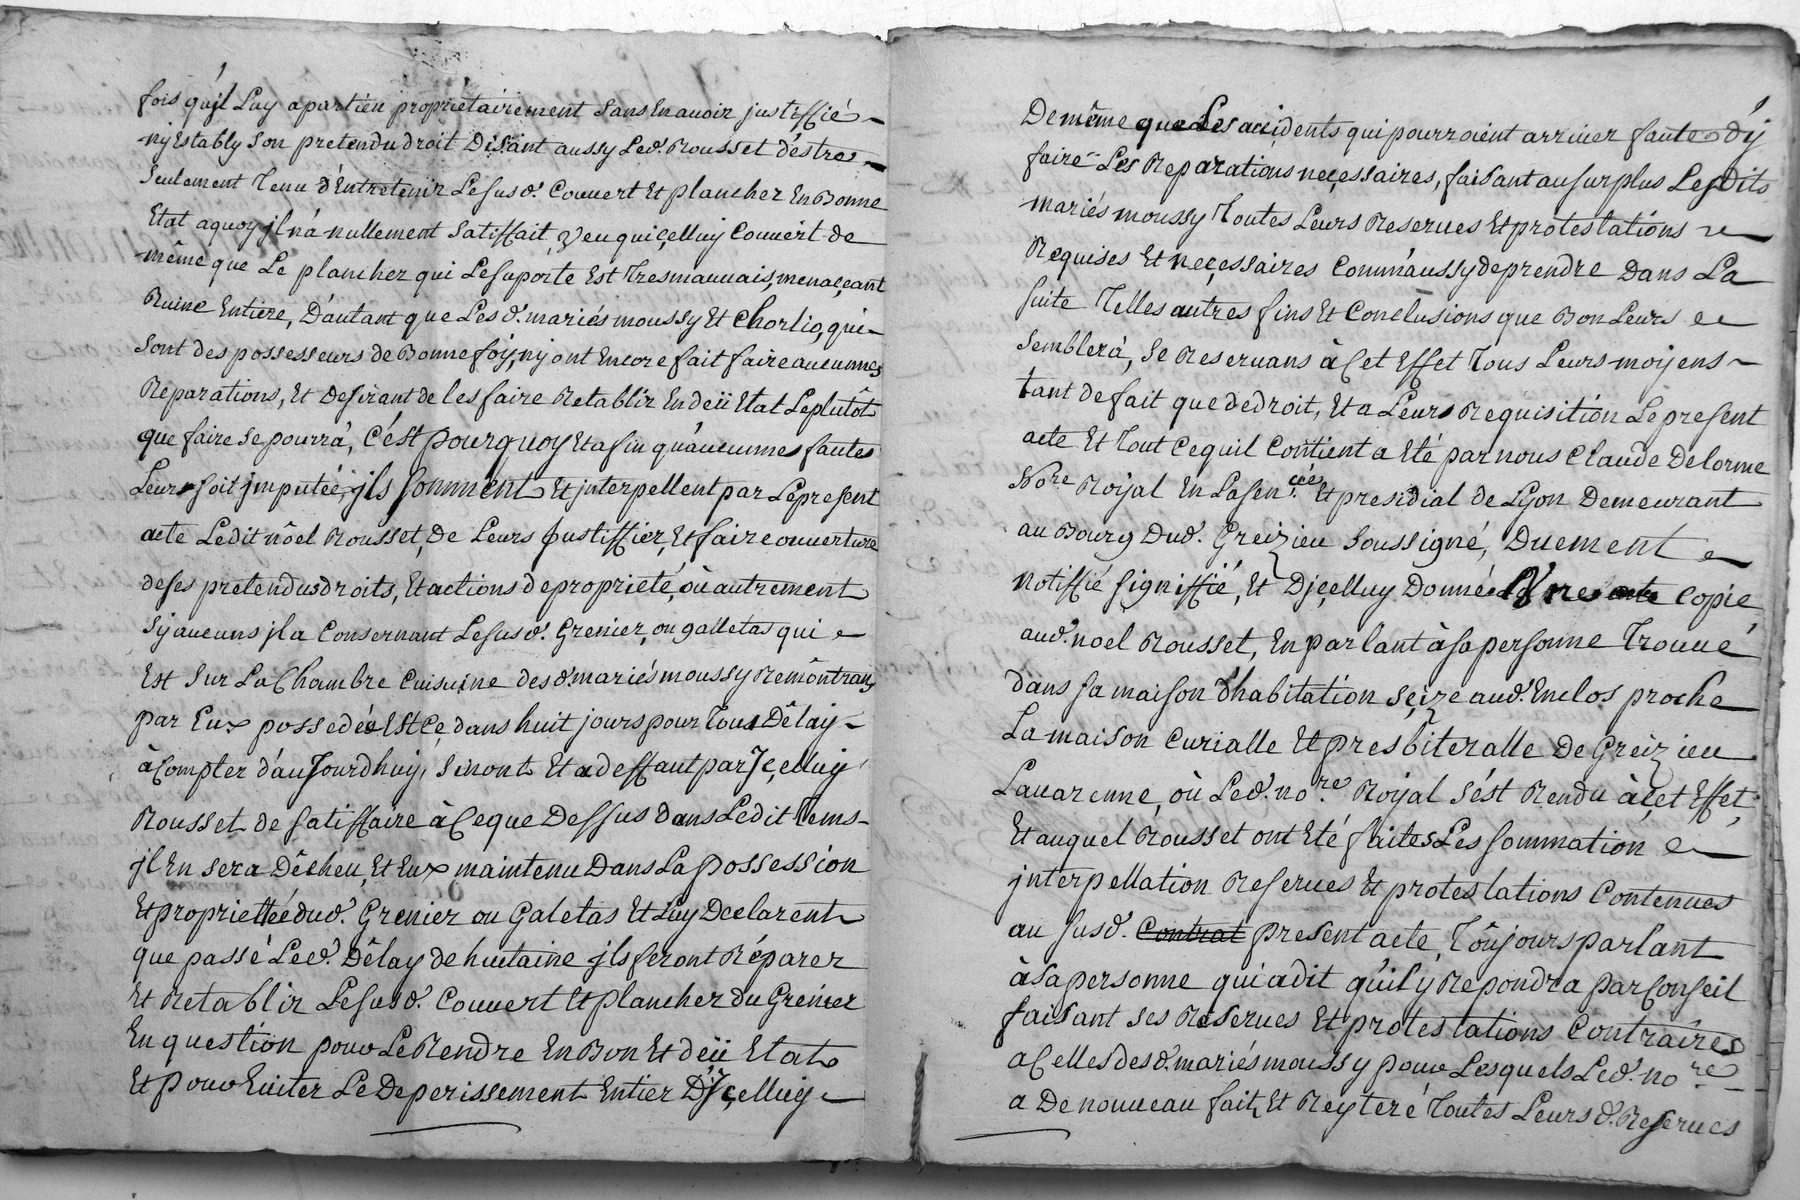 fois qu'jl Luy apartien proprietairement sans En avoir justiffié
nj Estably son pretendu droit Disant aussy Led. Rousset d'estre
seulement Tenu d'Entretenir Le susd. Couvert Et plancher En Bonne
Etat a quoy jl n'a nullement satisfait, veu qu'içelluy Couvert de
même que Le plancher qui Le suporte Est Tres mauvais, menaçeant
Ruine Entiere, D'autant que Les d. mariés moussy Et Chorlio, qui
sont des possesseurs de Bonne foÿ, nj ont Encore fait faire aucunnes
Réparations, Et Desirant de les faire Retablir En deü Etat Le plutôt
que faire se pourrà, C'ést pourquoy Et afin qu'aucunnes fautes
Leurs soit jmputée, jls somment Et jnterpellent par Le present
acte Ledit nôel Rousset, De Leurs Justiffier, Et faire ouverture
de ses pretendus droits, Et actions de proprieté, où autrement
sÿ aucuns jl a Consernant Le susd. Grenier, ou galletas qui
Est sur La Chambre Cuisuine des d. mariés moussy Remôntrans
par Eux possedée Est Ce, dans huit jours pour Tous Dêlaÿ
à Compter d'auJourdhuÿ, sinont Et a deffaut par Jçelluÿ
Rousset de satiffaire à Ce que Dessus dans Ledit tems
jl En sera Dêcheu, Et Eux maintenu Dans La possession
Et proprietteé dud. Grenier ou Galetas Et Luy Declarent
que passé Led. Dêlay de huitaine jls feront Réparer
Et Retablir Le susd. Couvert Et plancher du Grenier
En question pour Le Rendre En Bon Et deü Etat
Et pour Eviter Le Deperissement Entier D'Jçelluÿ
De même que Les accidents qui pourroient arriver faute d'ÿ
faire Les Reparations neçessaires, faisant au surplus Lesdits
mariés moussy Toutes Leurs Reserves Et protestations
Requises Et neçessaires Comm'aussy de prendre Dans La
suite Telles autres fins Et Conclusions que Bon Leurs
semblerà, se Reservans à Cet Effet Tous Leurs moyens
tant de fait que de droit, Et a Leurs Requisitión Le present
acte Et Tout Ce quil Contient a Eté par nous Claude Delorme
No.re Roÿal En La Sen.cée Et presidial de Lyon Demeurant
au Bourg Dud. Greizieu soussigné, Duement
notiffié signiffié, Et Djçelluy Donné copie
aud. noel Rousset, En parlant à sa personne Trouvé
dans sa maison d'habitation seize aud. Enclos proche
La maison Curialle Et presbiteralle De Greizieu
Lavarenne, où Led. no.re Roÿal s'ést Rendu à çet Effet,
Et auquel Rousset ont Eté faites Les sommation
jnterpellation Reserves Et protestations Contenues
au susd. Contrat present acte, Toûjours parlant
à sa personne qui a dit qu'il ÿ Repondra par Conseil
faisant ses Reserves Et protestations Contraires
a Celles des d. mariés moussy pour Lesquels Led. no.re
a De nouveau fait Et Reyteré Toutes Leurs d. Reserves